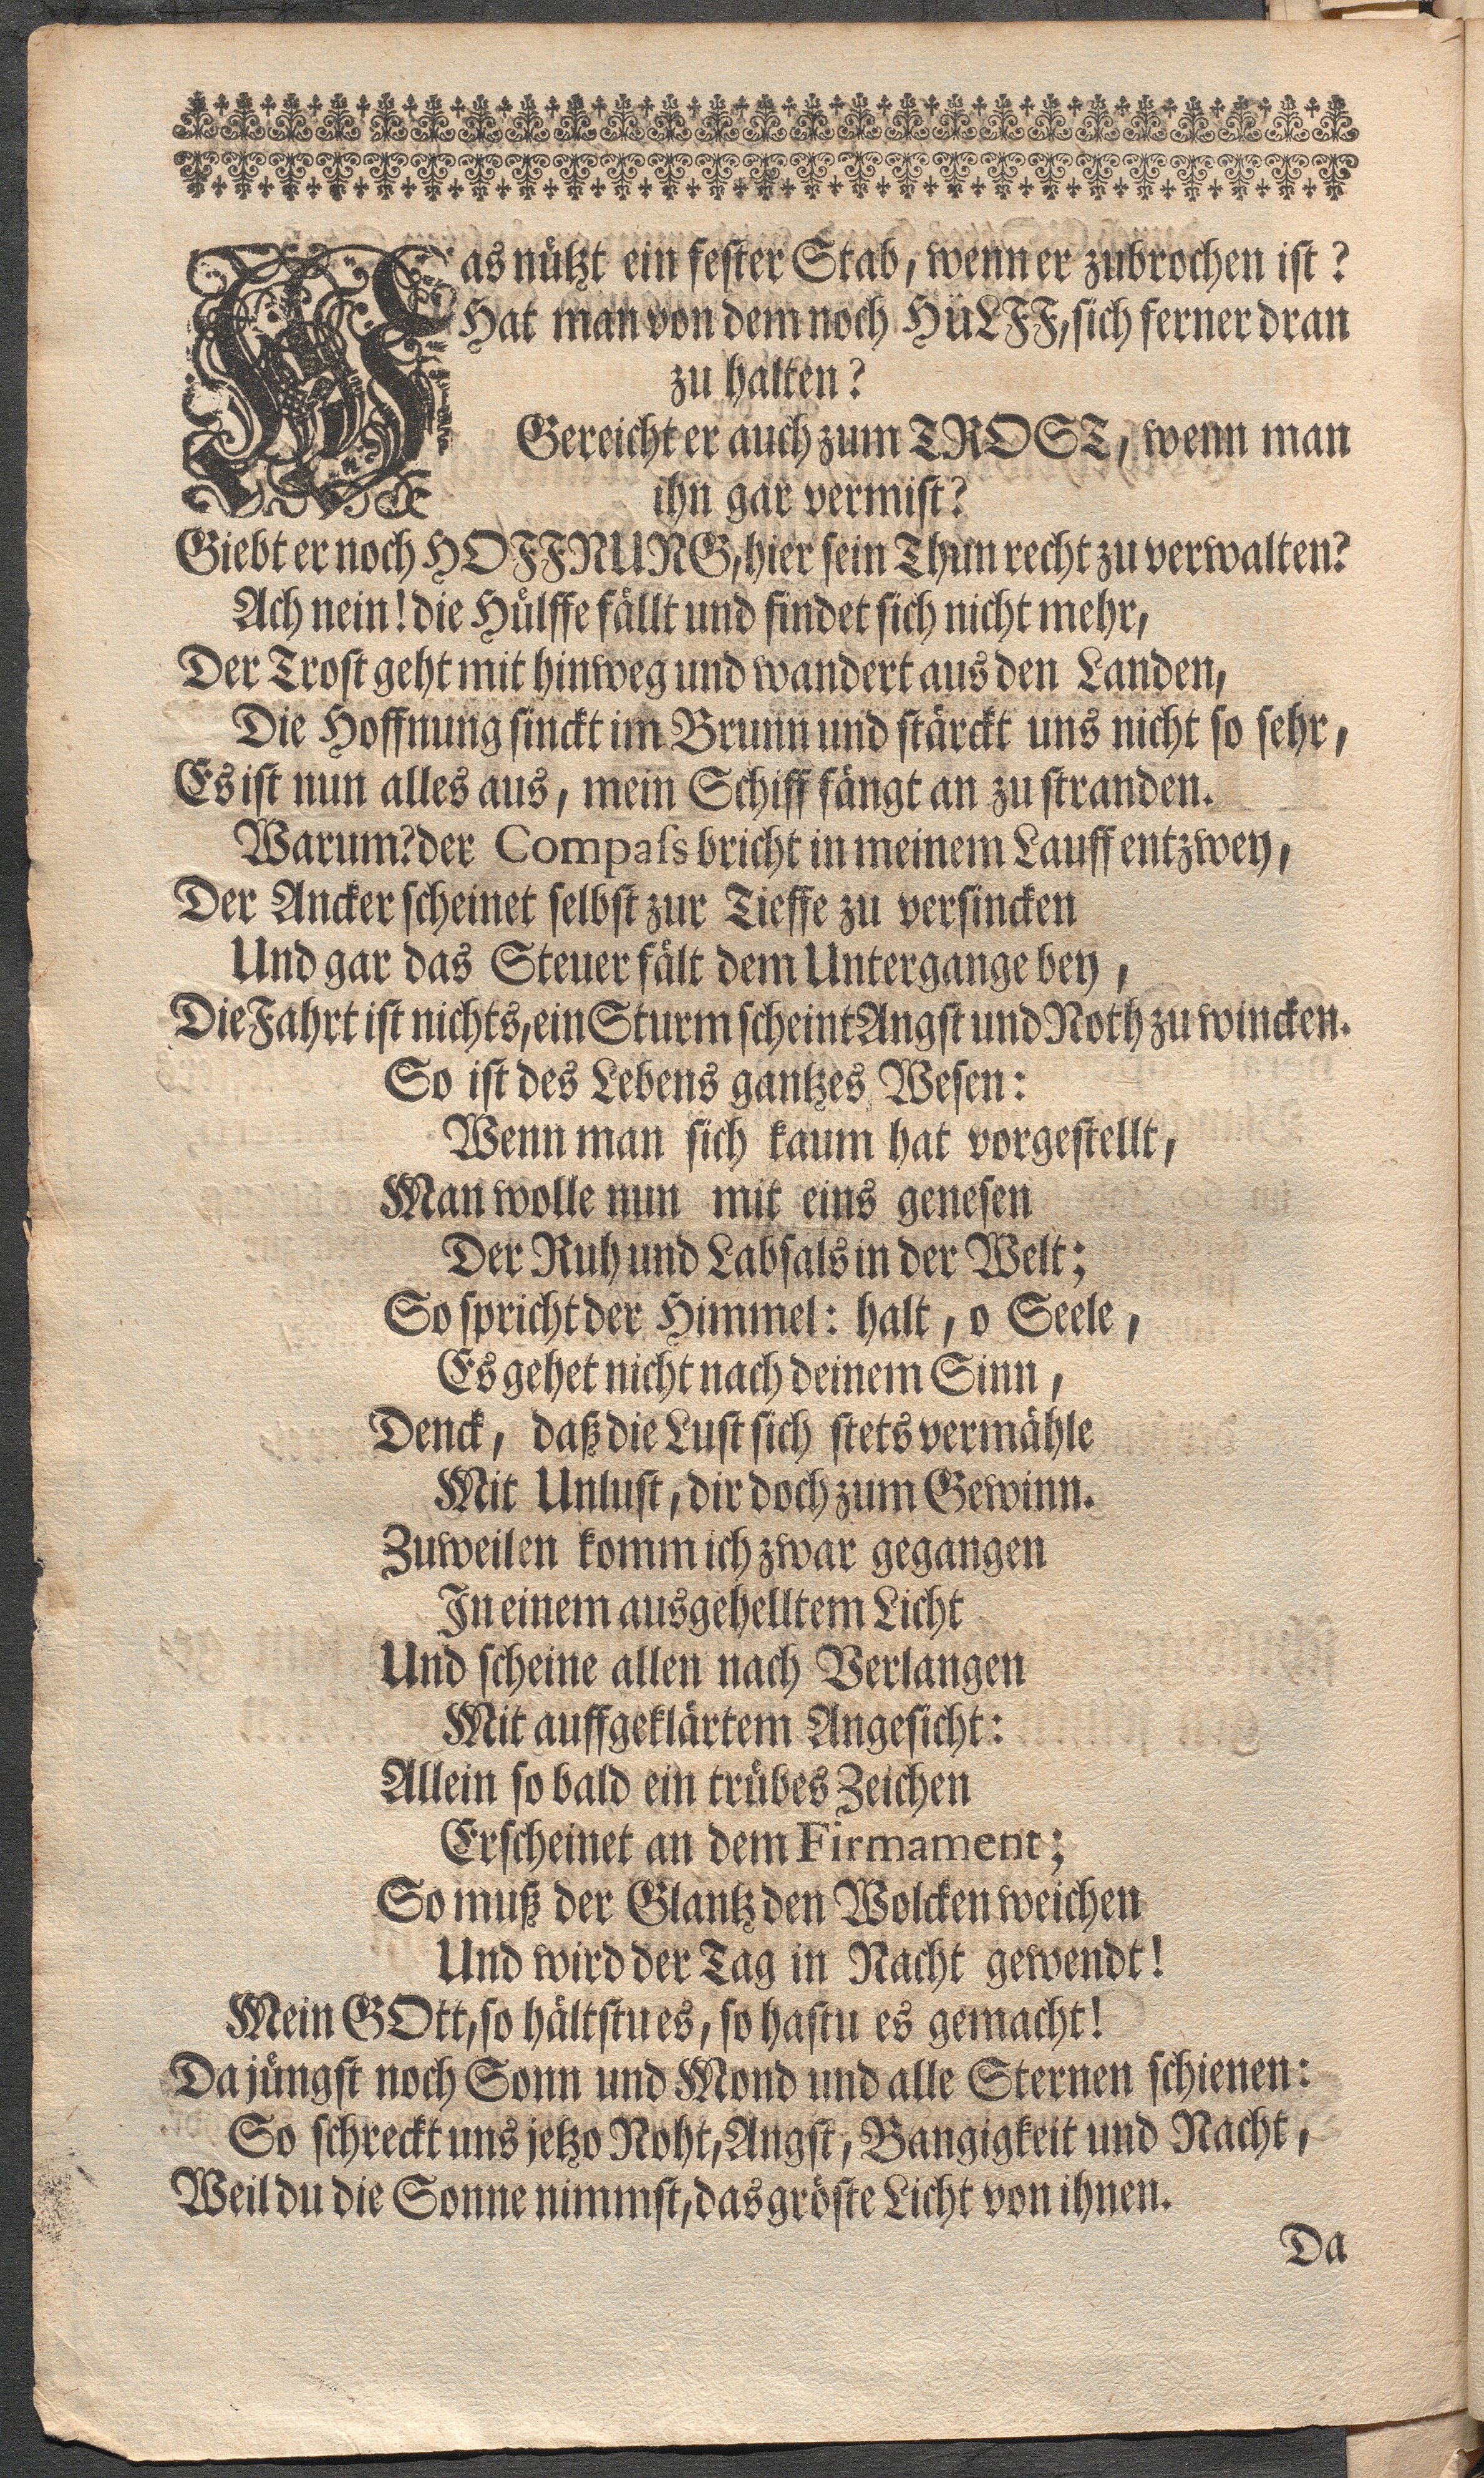 Was nützt ein fester Stab, wenn er zubrochen ist?
Hat man von dem noch HüLFF, sich ferner dran
zu halten?
Gereicht er auch zum TROST, wenn man
ihn gar vermist?
Giebt er noch HOFFNUNG, hier sein Thun recht zu verwalten?
Ach nein! die Hülffe fällt und findet sich nicht mehr,
Der Trost geht mit hinweg und wandert aus den Landen,
Die Hoffnung sinckt im Brunn und stärckt uns nicht so sehr,
Es ist nun alles aus, mein Schiff fängt an zu stranden.
Warum? der Compaſs bricht in meinem Lauff entzwey,
Der Ancker scheinet selbst zur Tieffe zu versincken
Und gar das Steuer fält dem Untergange bey,
Die Fahrt ist nichts, ein Sturm scheint Angst und Noth zu wincken.
So ist des Lebens gantzes Wesen:
Wenn man sich kaum hat vorgestellt,
Man wolle nun mit eins genesen
Der Ruh und Labsals in der Welt;
So spricht der Himmel: halt, o Seele,
Es gehet nicht nach deinem Sinn,
Denck, daß die Lust sich stets vermähle
Mit Unlust, dir doch zum Gewinn.
Zuweilen komm ich zwar gegangen
In einem ausgehelltem Licht
Und scheine allen nach Verlangen
Mit auffgeklärtem Angesicht:
Allein so bald ein trübes Zeichen
Erscheinet an dem Firmament;
So muß der Glantz den Wolcken weichen
Und wird der Tag in Nacht gewendt!
Mein GOtt, so hältstu es, so hastu es gemacht!
Da jüngst noch Sonn und Mond und alle Sternen schienen:
So schreckt uns jetzo Noht, Angst, Bangigkeit und Nacht,
Weil du die Sonne nimmst, das gröste Licht von ihnen.
Da